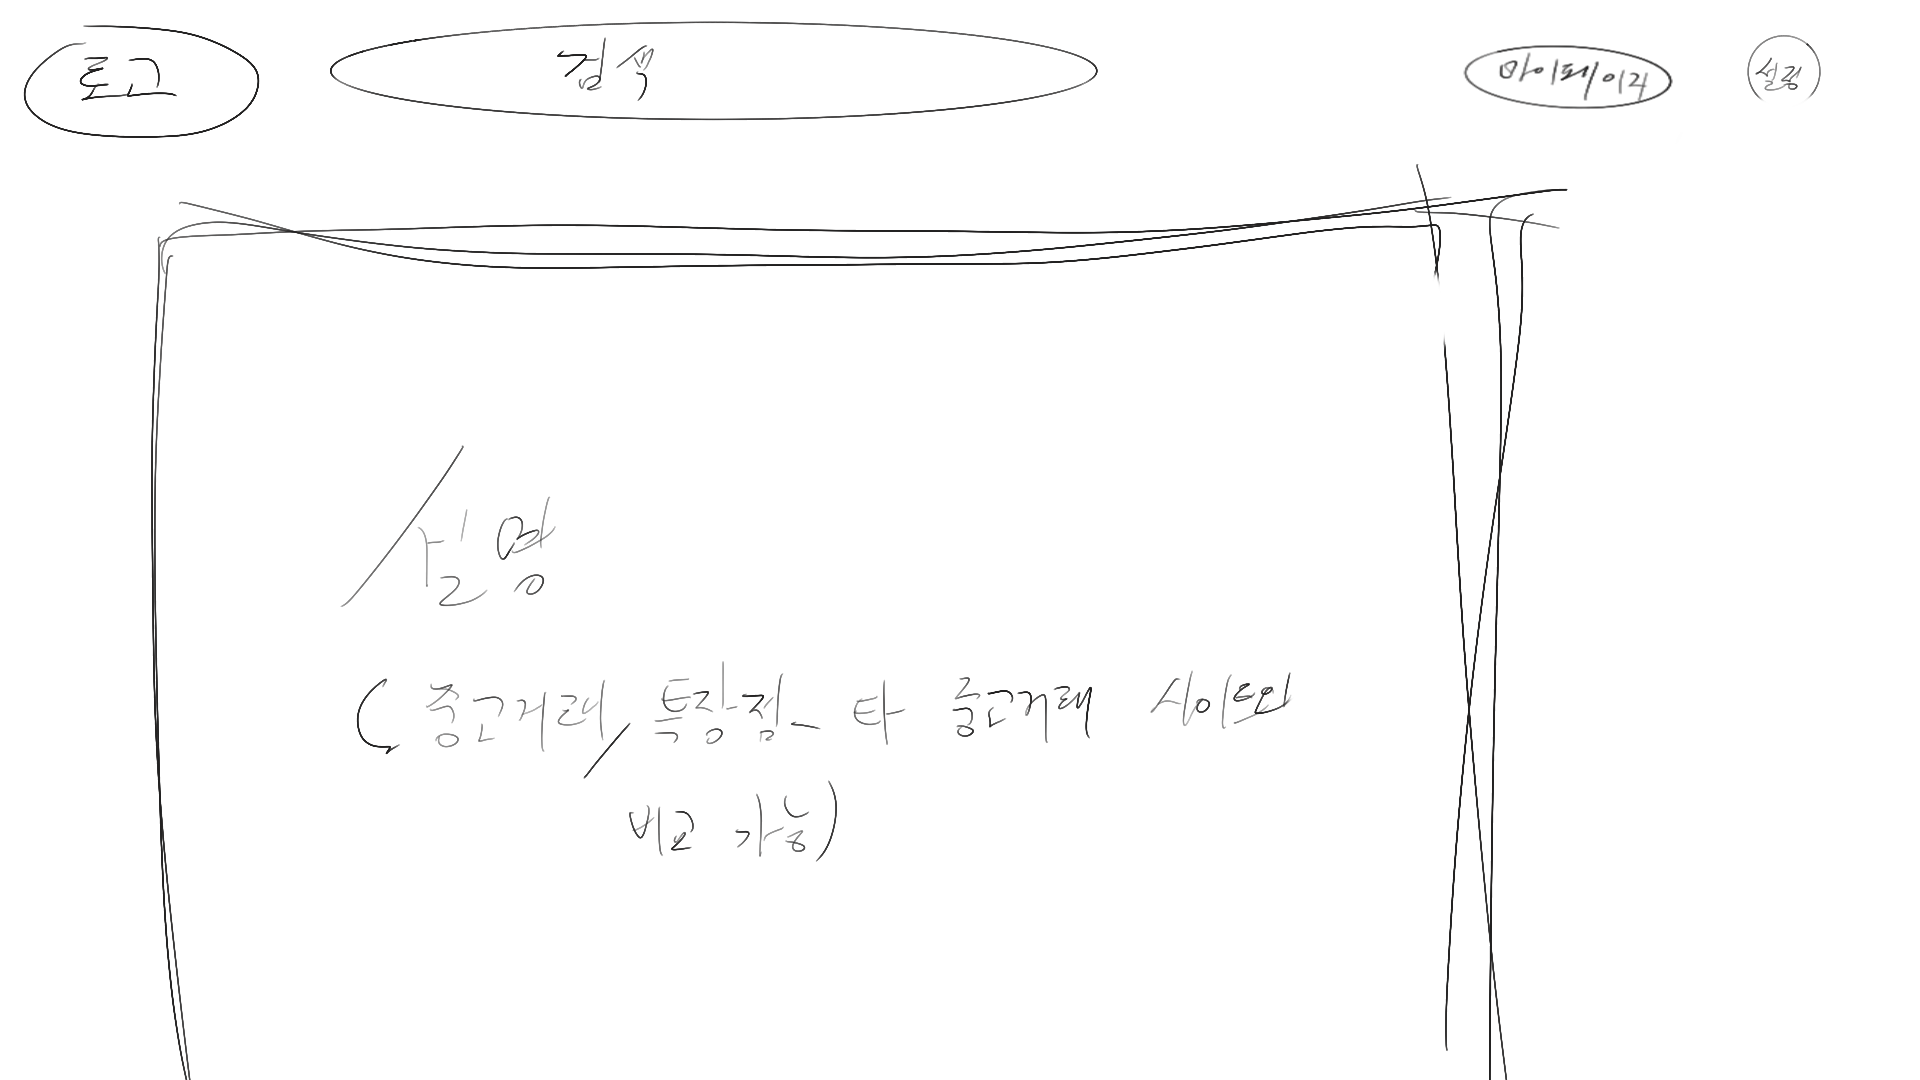 로고 검색 마이페이지 설정
설명
(중고거래, 특장점_ 타 중고거래 사이트와
비교 가능)